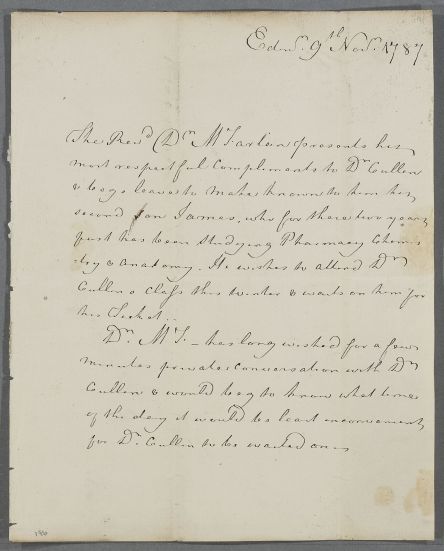 Edinr. 9th Novr. 1787
The Revd Dr McFarlan presents his
most respectful Compliments to Dr Cullen
& begs leave to make known to him his
second son James, who for these two years
past has been studying Pharmacy Chemis
try & anatomy. He wishes to attend Dr
Cullens Class this winter & waits on him for
his Ticket..
Dr. McF. - has long wished for a few
minutes private Conversation with Dr
Cullen & would beg to know what time
of the day it would be least inconvenient
for Dr. Cullen to be waited on